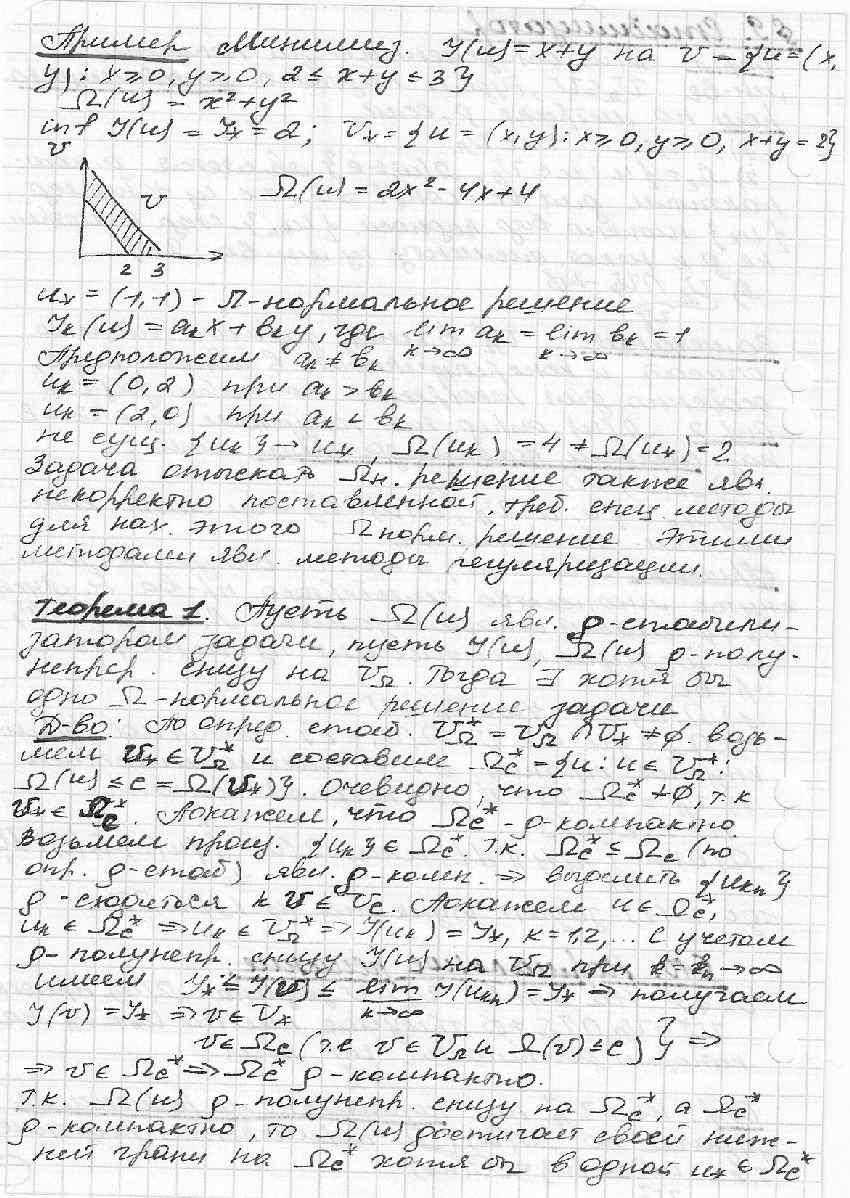 Пример Минимиз. J(u)=x+y на U = {u=(x,
y): x≥0, y≥0, 2≤ x+y ≤3}
Ω(u) = x²+y²
inf J(u) = J* = 2; U* = {u = (x,y): x≥0, y≥0, x+y=2}
U
U
Ω(u) = 2x² - 4x + 4
2 3
u* = (1,1) - Ω-нормальное решение
Jk(u) = akx + bky, где lim ak = lim bk = 1
k→∞ k→∞
Предположим ak ≠ bk
uk = (0,2) при ak > bk
uk = (2,0) при ak < bk
не сущ. {uk} → u*, Ω(uk) = 4 ≠ Ω(u*) = 2
Задача отыскать Ωн. решение также явл.
некорректно поставленной, треб. спец методы
для нах. этого Ω норм. решение Этими
методами явл. методы регуляризации.
Теорема 1. Пусть Ω(u) явл. ρ-стабили-
затором задачи, пусть J(u), Ω(u) ρ-полу-
непрер. снизу на UΩ. Тогда ∃ хотя бы
одно Ω-нормальное решение задачи
Д-во: По опред. стаб. UΩ* = UΩ ∩ U* ≠ ∅. возь-
мем v* ∈ UΩ* и составим Ωc* = {u: u ∈ UΩ*:
Ω(u) ≤ c = Ω(v*)}. Очевидно, что Ωc* ≠ ∅, т.к
v* ∈ Ωc*. Докажем, что Ωc* - ρ-компактно.
возьмем произ. {uk} ∈ Ωc*. т.к. Ωc* ≤ Ωc (по
опр. ρ-стаб) явл. ρ-комп. ⇒ выделить {ukn}
ρ-сходиться к v ∈ Uc. Докажем u ∈ Ωc*,
uk ∈ Ωc* ⇒ uk ∈ UΩ* ⇒ J(uk) = J*, k = 1,2,... С учетом
ρ-полунепр. снизу J(u) на UΩ при k = kn → ∞
имеем J* ≤ J(v) ≤ lim J(ukn) = J* ⇒ получаем
k→∞
J(v) = J* ⇒ v ∈ U*
v ∈ Ωc (т.е v ∈ UΩ и Ω(v) ≤ c) } ⇒
⇒ v ∈ Ωc* ⇒ Ωc* ρ-компактно.
т.к. Ω(u) ρ-полунепр. снизу на Ωc*, а Ωc*
ρ-компактно, то Ω(u) достигает своей ниж-
ней грани на Ωc* хотя бы в одной u* ∈ Ωc*